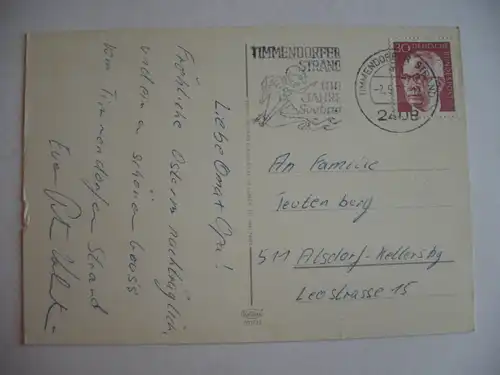 Liebe Oma + Opa!
Fröhliche Ostern nachträglich,
und einen schönen
vom Timmendorfer Strand
TIMMENDORFER
STRAND
100
JAHRE
Seebad
TIMMENDORFER STRAND
2408
30
DEUTSCHE
An Familie
Teutenberg
511 Alsdorf-Kellersbg
Leostrasse 15